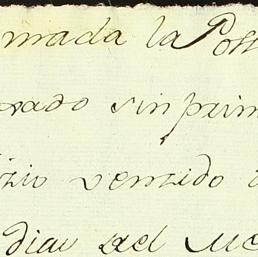 mada la Poss
rado sin prim
izio venzido
dias del Me